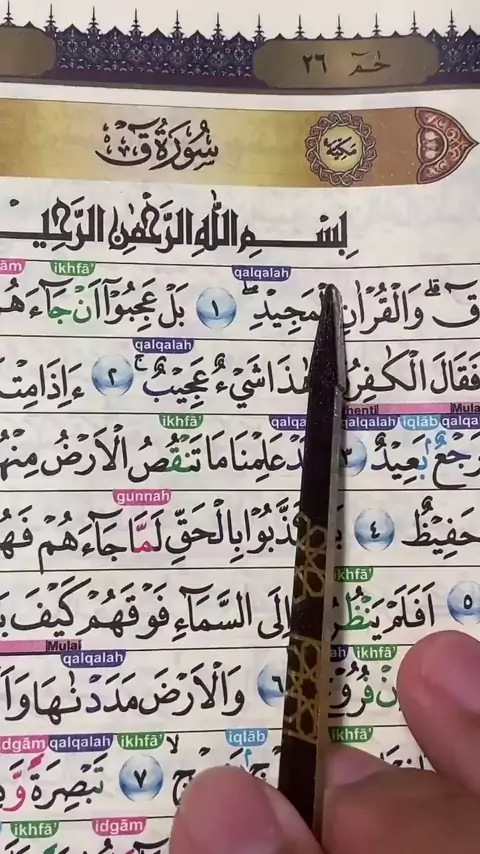 حٰمٓ ٢٦
سُورَةُ قٓ
مَكِّيَّة
بِسْمِ اللّٰهِ الرَّحْمٰنِ الرَّحِيْ
idgām ikhfā' qalqalah
قٓ ۗ وَالْقُرْاٰنِ الْمَجِيْدِ ۖ ١ بَلْ عَجِبُوْٓا اَنْ جَاۤءَهُ
qalqalah
فَقَالَ الْكٰفِرُ هٰذَا شَيْءٌ عَجِيْبٌ ۚ ٢ ءَاِذَا مِتْ
ikhfā' qalqalah iqlāb
رَجْعٌۢ بَعِيْدٌ ٣ عَلِمْنَا مَا تَنْقُصُ الْاَرْضُ مِنْهُ
gunnah
حَفِيْظٌ ٤ كَذَّبُوْا بِالْحَقِّ لَمَّا جَاۤءَهُمْ فَهُ
ikhfā'
٥ اَفَلَمْ يَنْظُرُ اِلَى السَّمَاۤءِ فَوْقَهُمْ كَيْفَ بَ
Mulai qalqalah ikhfā'
فُرُوْ ٦ وَالْاَرْضَ مَدَدْنٰهَا وَاَ
idgām qalqalah ikhfā' iqlāb ikhfā'
٧ تَبْصِرَةً وَّ
ikhfā' idgām